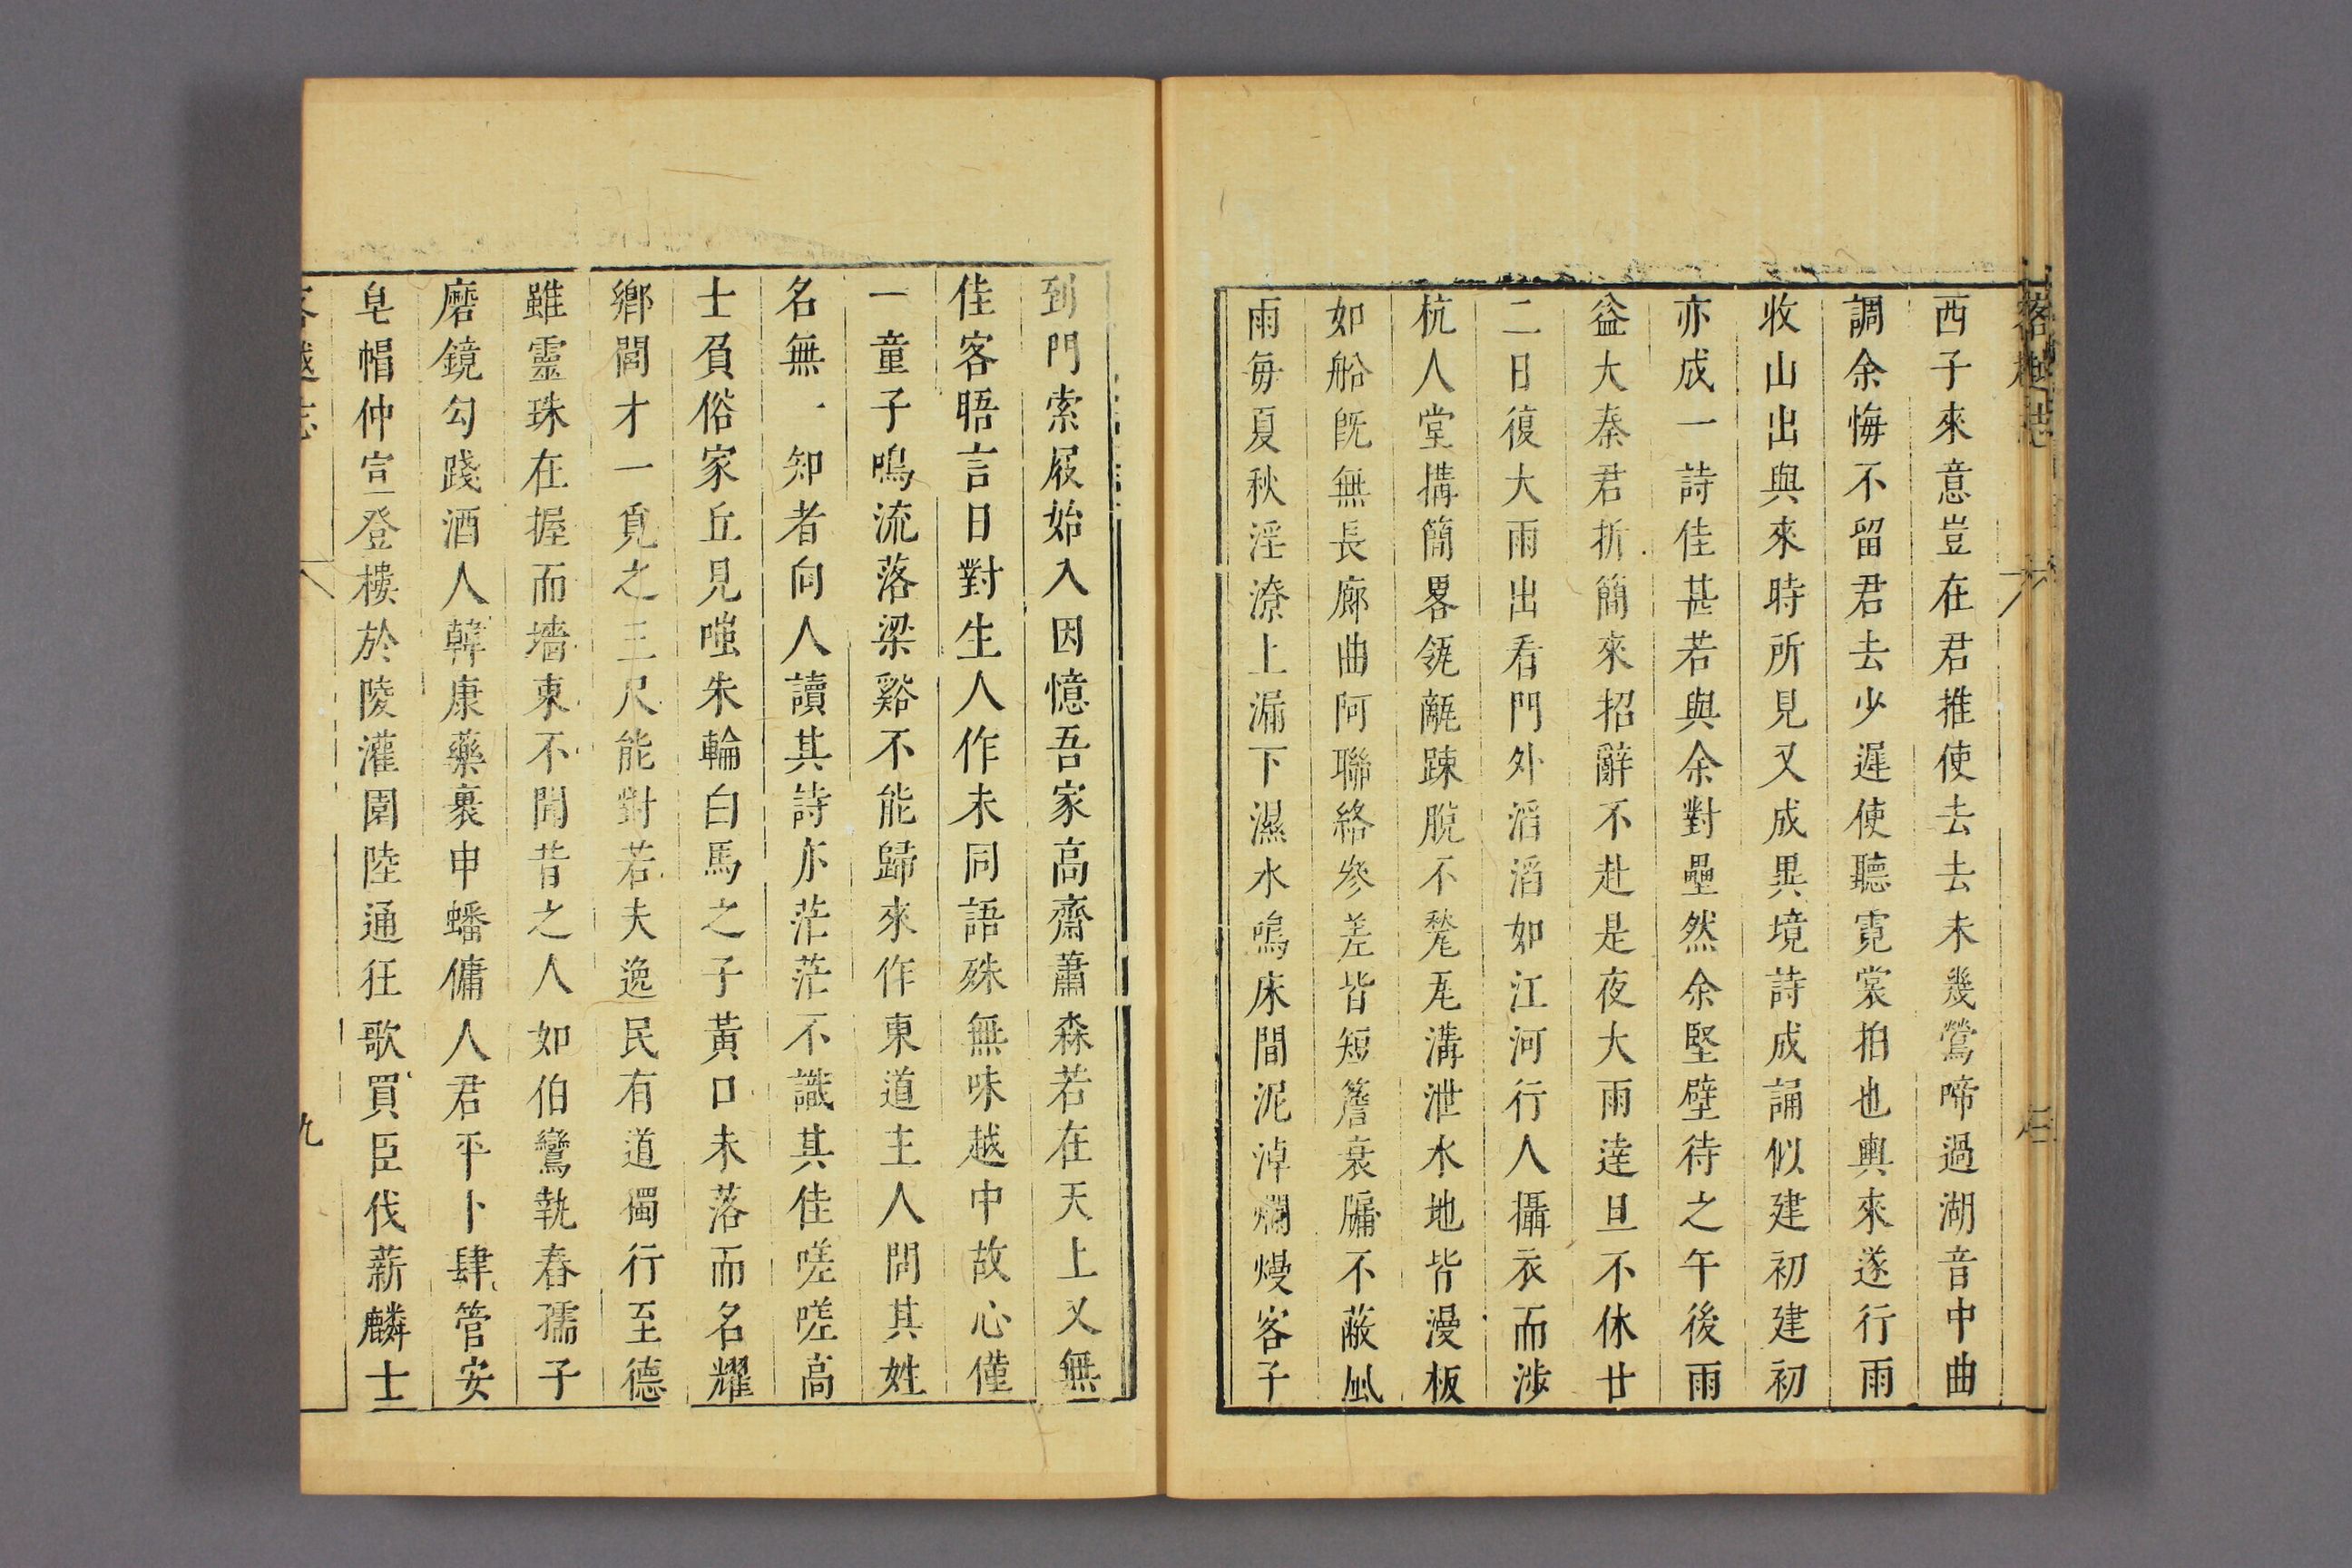 客越志
西子來意豈在君推使去去未幾鶯啼過湖音中曲
調余悔不留君去少遲使聽霓裳拍也輿來遂行雨
收山出與來時所見又成異境詩成誦似建初建初
亦成一詩佳甚若與余對壘然余堅壁待之午後雨
益大秦君折簡來招辭不赴是夜大雨達旦不休廿
二日復大雨出看門外滔滔如江河行人攝衣而涉
杭人堂搆簡畧瓴甋踈脫不甃瓦溝泄水地皆漫板
如船旣無長廊曲阿聯絡參差皆短簷衰牖不蔽風
雨每夏秋淫潦上漏下濕水鳴床間泥淖爛熳客子
到門索屐始入因憶吾家高齋蕭森若在天上又無
佳客晤言日對生人作未同語殊無味越中故心僅
一童子鳴流落梁谿不能歸來作東道主人問其姓
名無一知者向人讀其詩亦茫茫不識其佳嗟嗟高
士負俗家丘見嗤朱輪白馬之子黃口未落而名耀
鄉閭才一覓之三尺能對若夫逸民有道獨行至德
雖靈珠在握而墻東不聞昔之人如伯鸞執舂孺子
磨鏡勾踐酒人韓康藥裹申蟠傭人君平卜肆管安
皂帽仲宣登樓於陵灌園陸通狂歌買臣伐薪麟士
客越志
九